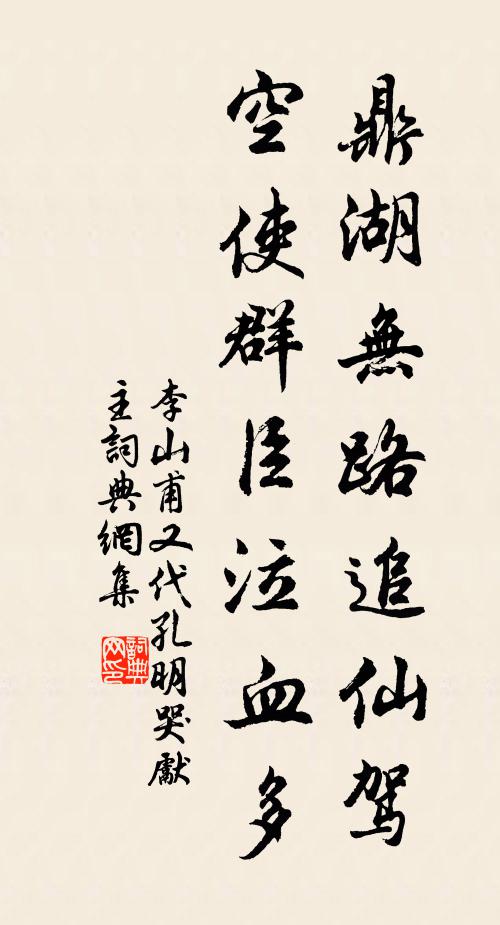 鼎湖無路追仙駕
空使群臣泣血多
李山甫又代孔明哭獻
主詞典網集
詞典
网印